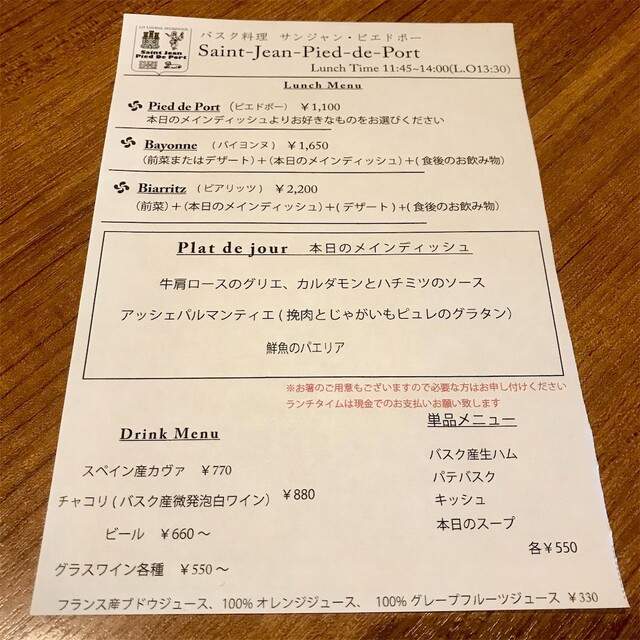 Saint Jean
Pied De Port
バスク料理 サンジャン・ピエドポー
Saint-Jean-Pied-de-Port
Lunch Time 11:45~14:00(L.O13:30)
Lunch Menu
Pied de Port (ピエドポー) ¥1,100
本日のメインディッシュよりお好きなものをお選びください
Bayonne (バイヨンヌ) ¥1,650
(前菜またはデザート)+(本日のメインディッシュ)+(食後のお飲み物)
Biarritz (ビアリッツ) ¥2,200
(前菜)+(本日のメインディッシュ)+(デザート)+(食後のお飲み物)
Plat de jour 本日のメインディッシュ
牛肩ロースのグリエ、カルダモンとハチミツのソース
アッシェパルマンティエ(挽肉とじゃがいもピュレのグラタン)
鮮魚のパエリア
※お箸のご用意もございますので必要な方はお申し付けください
ランチタイムは現金でのお支払いお願い致します
Drink Menu
スペイン産カヴァ ¥770
チャコリ(バスク産微発泡白ワイン) ¥880
ビール ¥660〜
グラスワイン各種 ¥550〜
単品メニュー
バスク産生ハム
パテバスク
キッシュ
本日のスープ
各¥550
フランス産ブドウジュース、100%オレンジジュース、 100%グレープフルーツジュース ¥330